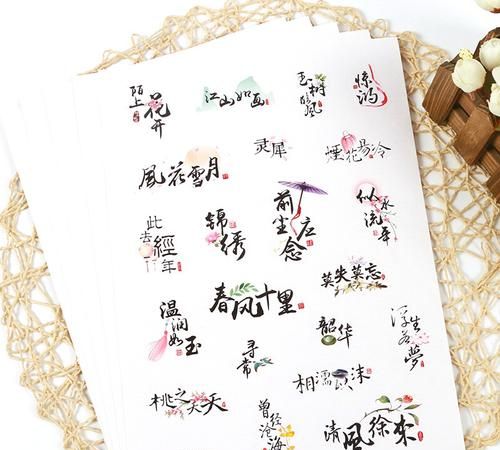 陌上花开
江山如画
玉树临风
惊鸿
灵犀
烟花易冷
風花雪月
此去經年
锦绣
前尘应念
似水流年
春风十里
莫失莫忘
温润如玉
寻常
韶华
浮生若夢
相濡以沫
桃之夭夭
曾经沧海
清風徐來